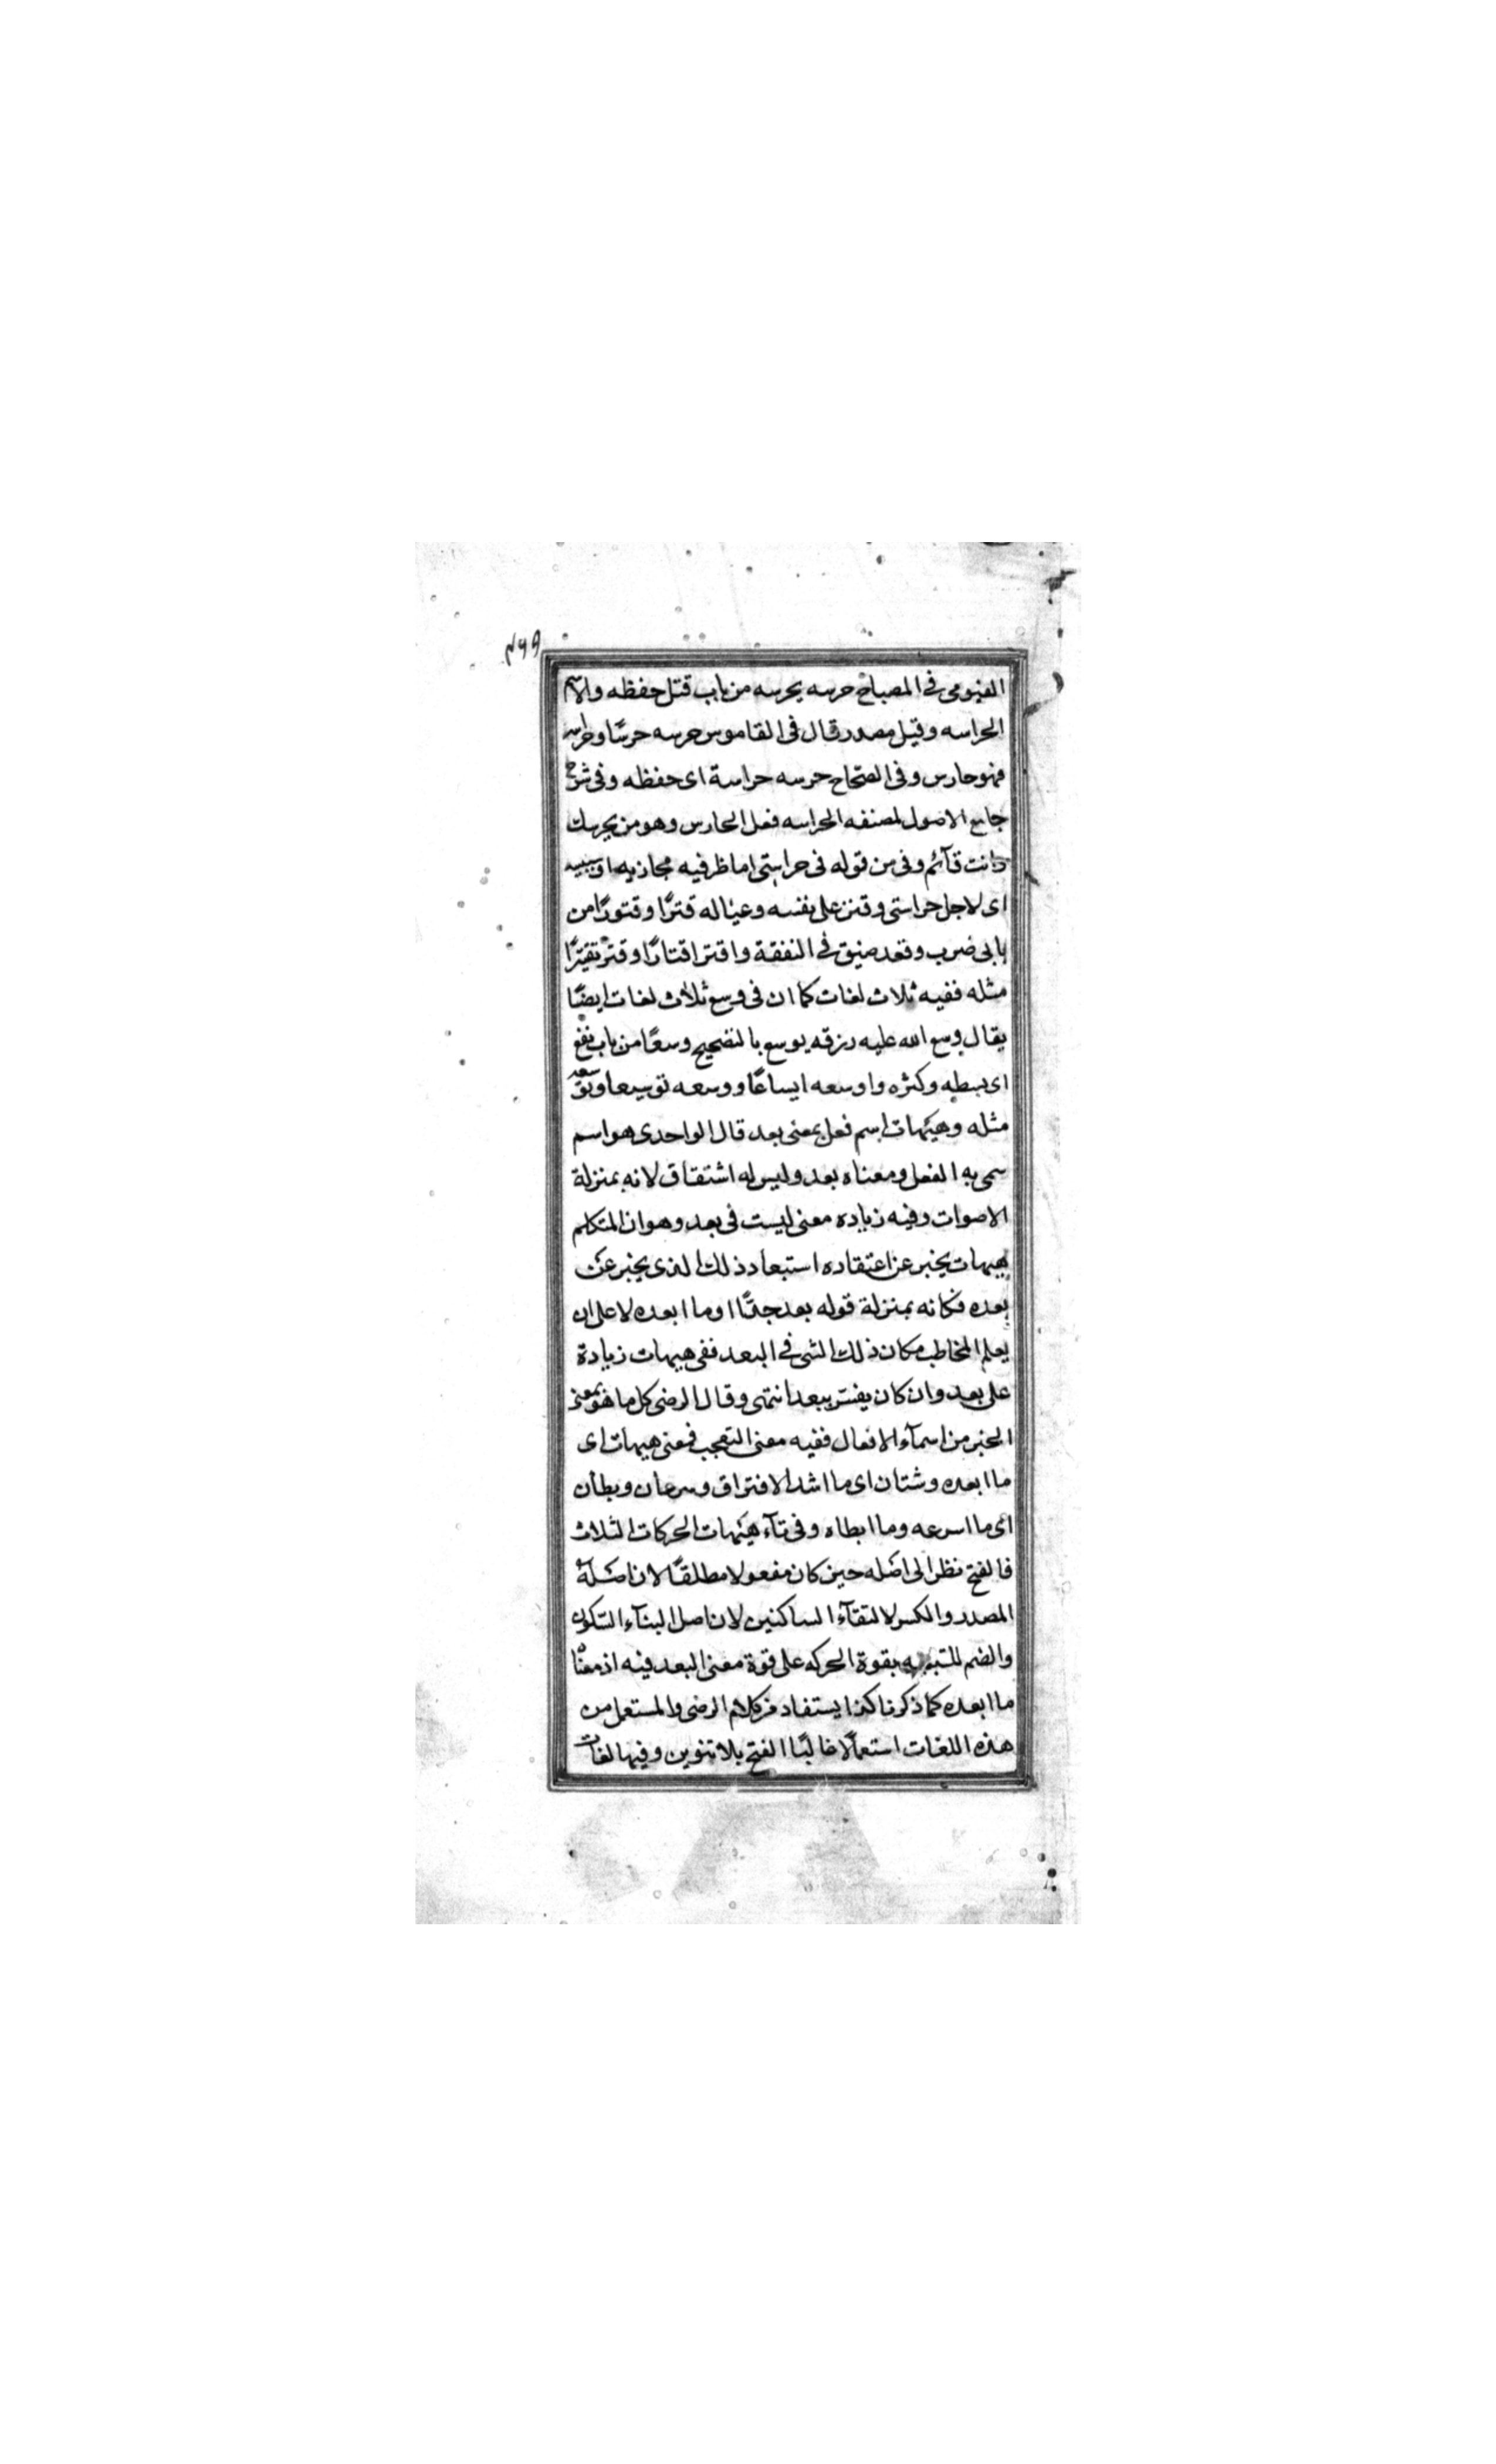 ٤٦٩
الفيومى فى المصباح حرسه يحرسه من باب قتل حفظه والاسم
الحراسه وقيل مصدر قال فى القاموس حرسه حرسًا وحراسه
فهو حارس وفى الصّحاح حرسه حراسة اى حفظه وفى شرح
جامع الاصول لمصنفه الحراسه فعل الحارس وهو من يحرسك
وانت قآئم وفى من قوله فى حراستى اما ظرفيه مجازيه او سببيه
اى لاجل حراستى وقتر على نفسه وعياله قترًا وقتورًا من
بابى ضرب وقعد ضيق فى النفقة واقتر اقتارًا وقتر تقتيرًا
مثله ففيه ثلاث لغات كما ان فى وسع ثلاث لغات ايضًا
يقال وسع الله عليه رزقه يوسع بالتصحيح وسعًا من باب نفع
اى بسطه وكثره واوسعه ايساعًا ووسعه توسيعا وتوسعه
مثله وهيهات اسم فعل بمعنى بعد قال الواحدى هو اسم
سمى به الفعل ومعناه بعد وليس له اشتقاق لانه بمنزلة
الاصوات وفيه زياده معنى ليست فى بعد وهو ان المتكلم
بهيهات يخبر عن اعتقاده استبعاد ذلك الذى يخبر عن
بعده فكانه بمنزلة قوله بعد جدًّا او ما ابعده لا على ان
يعلم المخاطب مكان ذلك الشى فى البعد ففى هيهات زيادة
على بعد وان كان يفسّر ببعد انتهى وقال الرضى كل ما هو بمعنى
الخبر من اسمآء الافعال ففيه معنى التعجب فمعنى هيهات اى
ما ابعده وشتان اى ما اشد الافتراق وسرعان وبطأن
اى ما اسرعه وما ابطاه وفى تآء هيهات الحركات الثلاث
فالفتح نظرا الى اصله حين كان مفعولا مطلقًا لان اصله
المصدر والكسر لالتقآء الساكنين لان اصل البنآء السّكون
والضم للتنبيه بقوة الحركه على قوة معنى البعد فيه اذ معنًا
ما ابعده كما ذكرنا كذا يستفاد من كلام الرضى والمستعمل من
هذه اللغات استعمالًا غالبًا الفتح بلا تنوين وفيها لغات